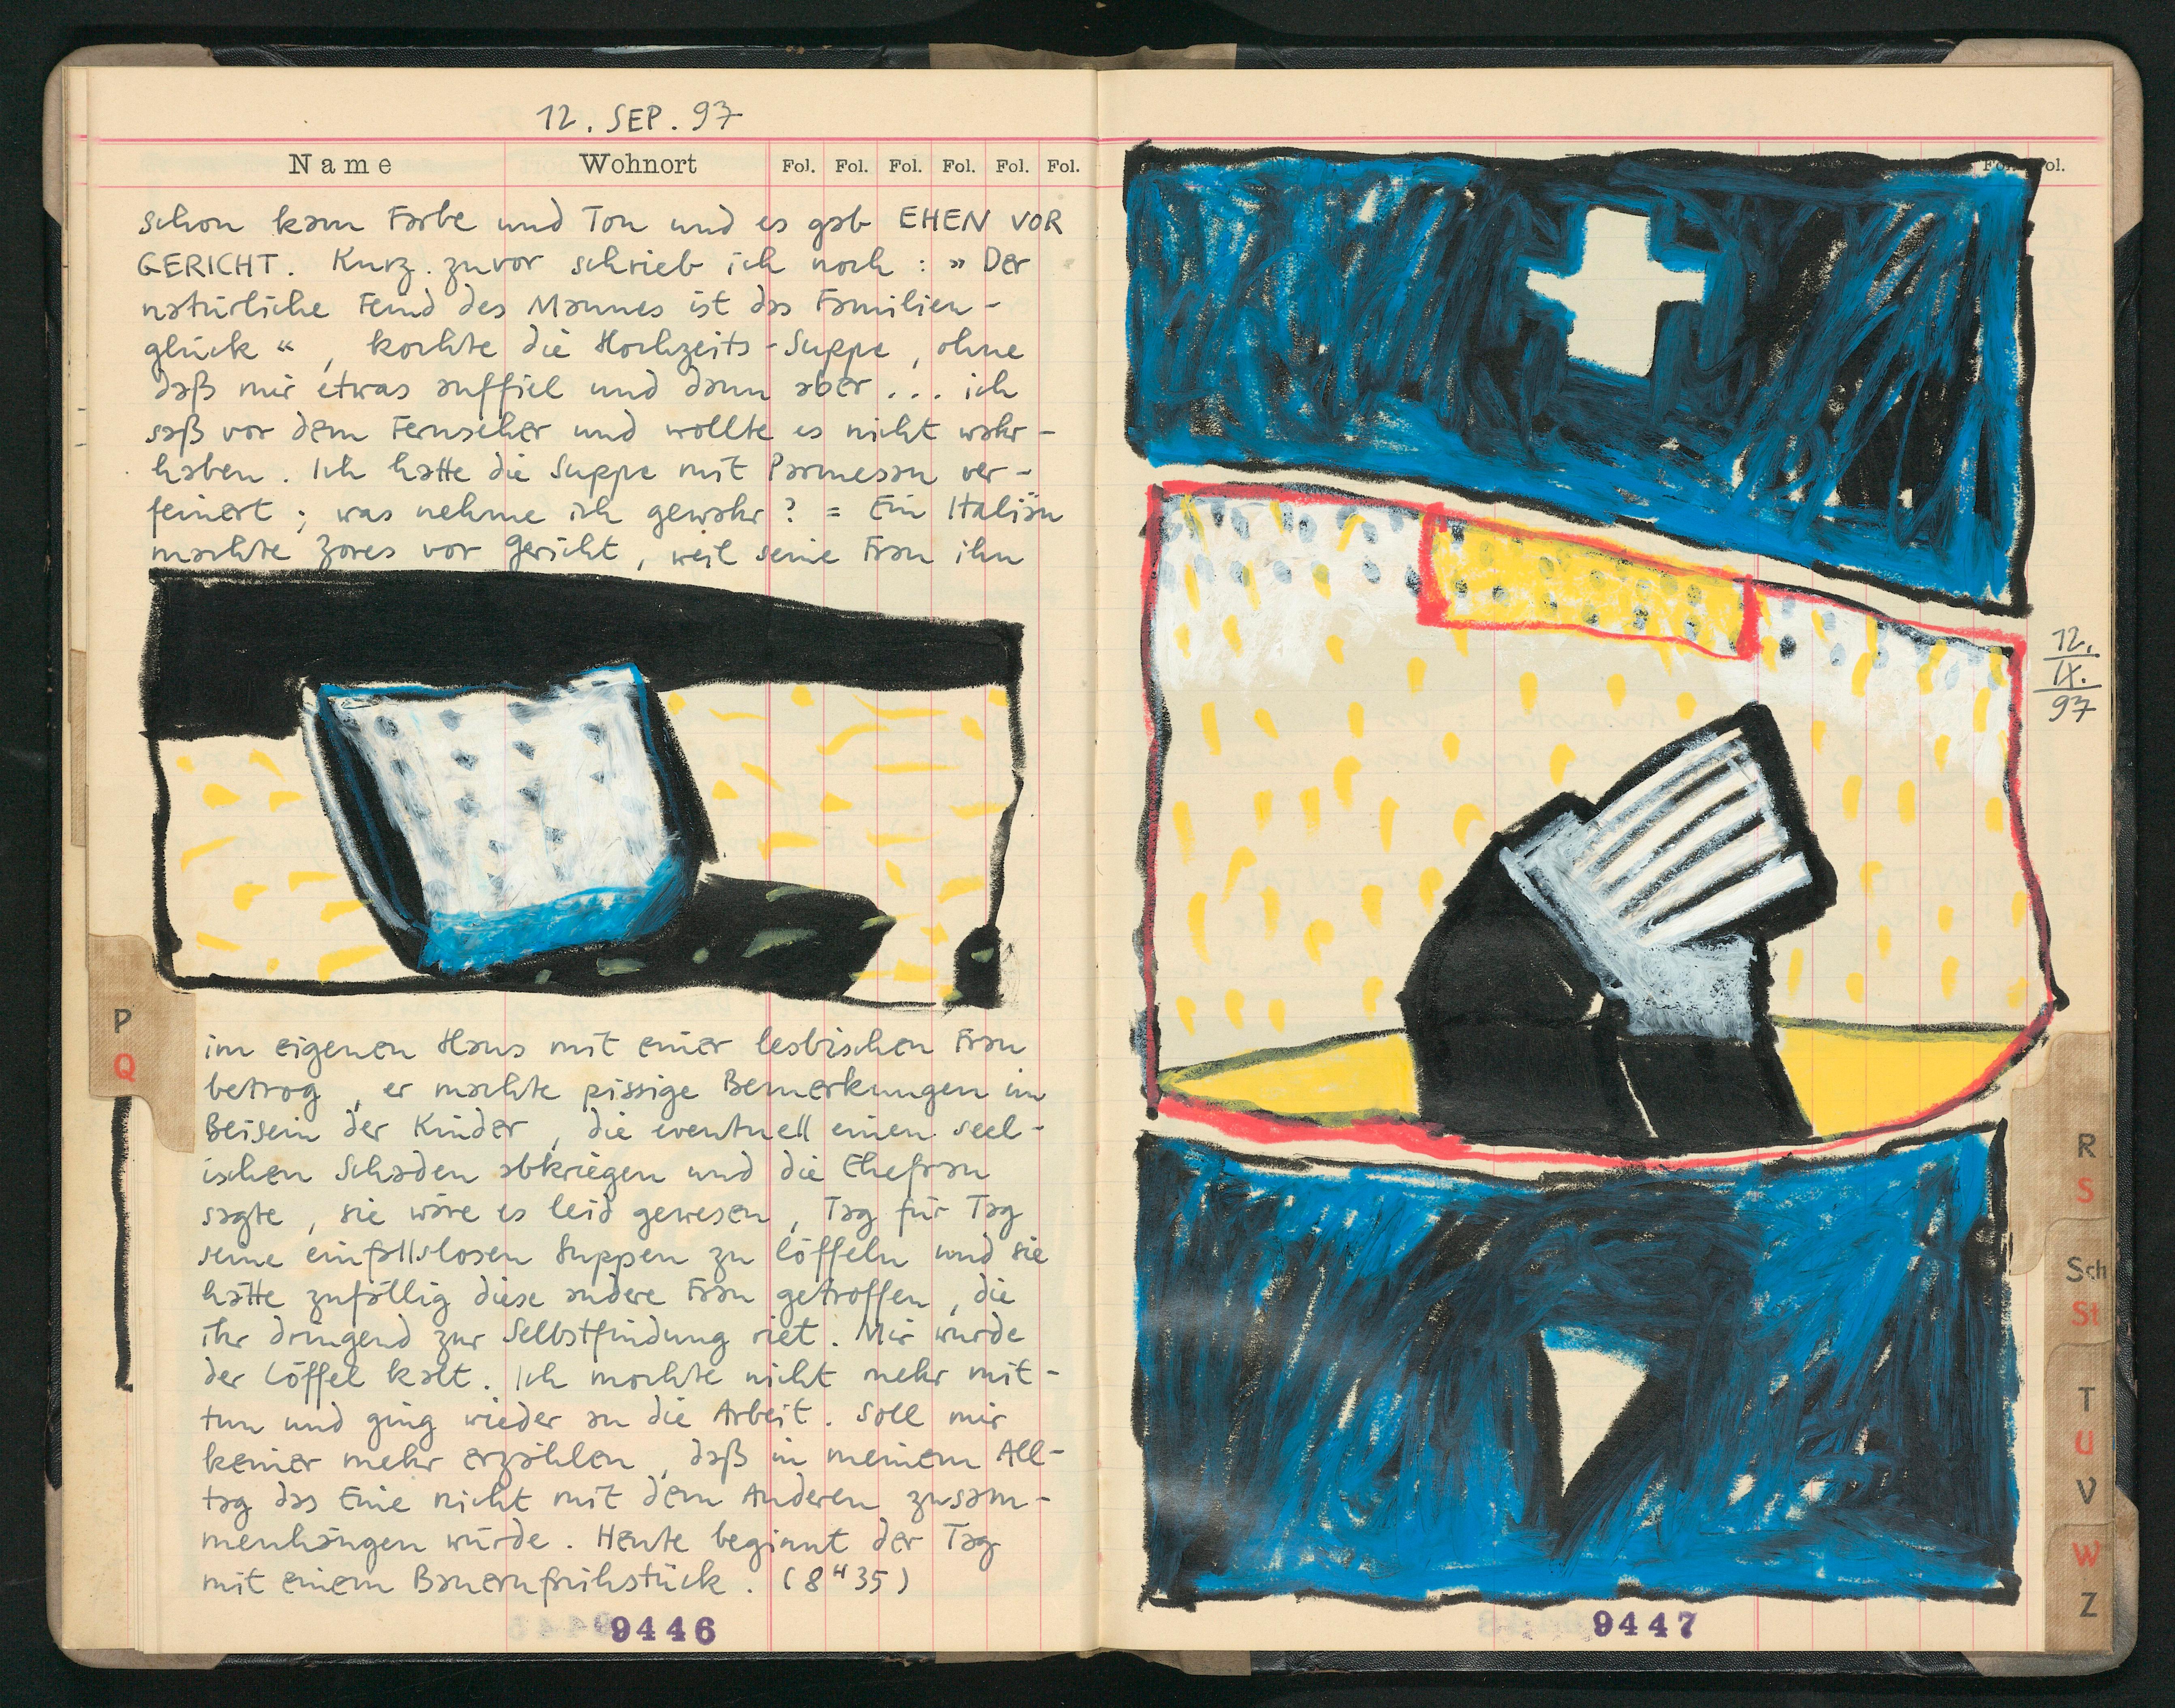 12. SEP. 97
Name Wohnort Fol. Fol. Fol. Fol. Fol. Fol.
schon kam Farbe und Ton und es gab EHEN VOR
GERICHT. Kurz zuvor schrieb ich noch : » Der
natürliche Feind des Mannes ist das Familien-
glück « , kochte die Hochzeits-Suppe , ohne
daß mir etwas auffiel und dann aber ... ich
saß vor dem Fernseher und wollte es nicht wahr-
haben. Ich hatte die Suppe mit Parmesan ver-
feinert ; was nehme ich gewahr ? = Ein Italiän
machte zores vor Gericht , weil seine Frau ihn
im eigenen Haus mit einer lesbischen Frau
betrog , er machte pissige Bemerkungen im
Beisein der Kinder , die eventuell einen seel-
ischen Schaden abkriegen und die Ehefrau
sagte , sie wäre es leid gewesen , Tag für Tag
seine einfallslosen Suppen zu löffeln und sie
hätte zufällig diese andere Frau getroffen , die
ihr dringend zur Selbstfindung riet. Mir wurde
der Löffel kalt. Ich mochte nicht mehr mit-
tun und ging wieder an die Arbeit. Soll mir
keiner mehr erzählen , daß in meinem All-
tag das Eine nicht mit dem Anderen zusam-
menhängen würde. Heute beginnt der Tag
mit einem Bauernfrühstück. (8 H 35)
9446
P
Q
Fol. Fol.
12.
IX.
97
R
S
Sch
St
T
U
V
W
Z
9447